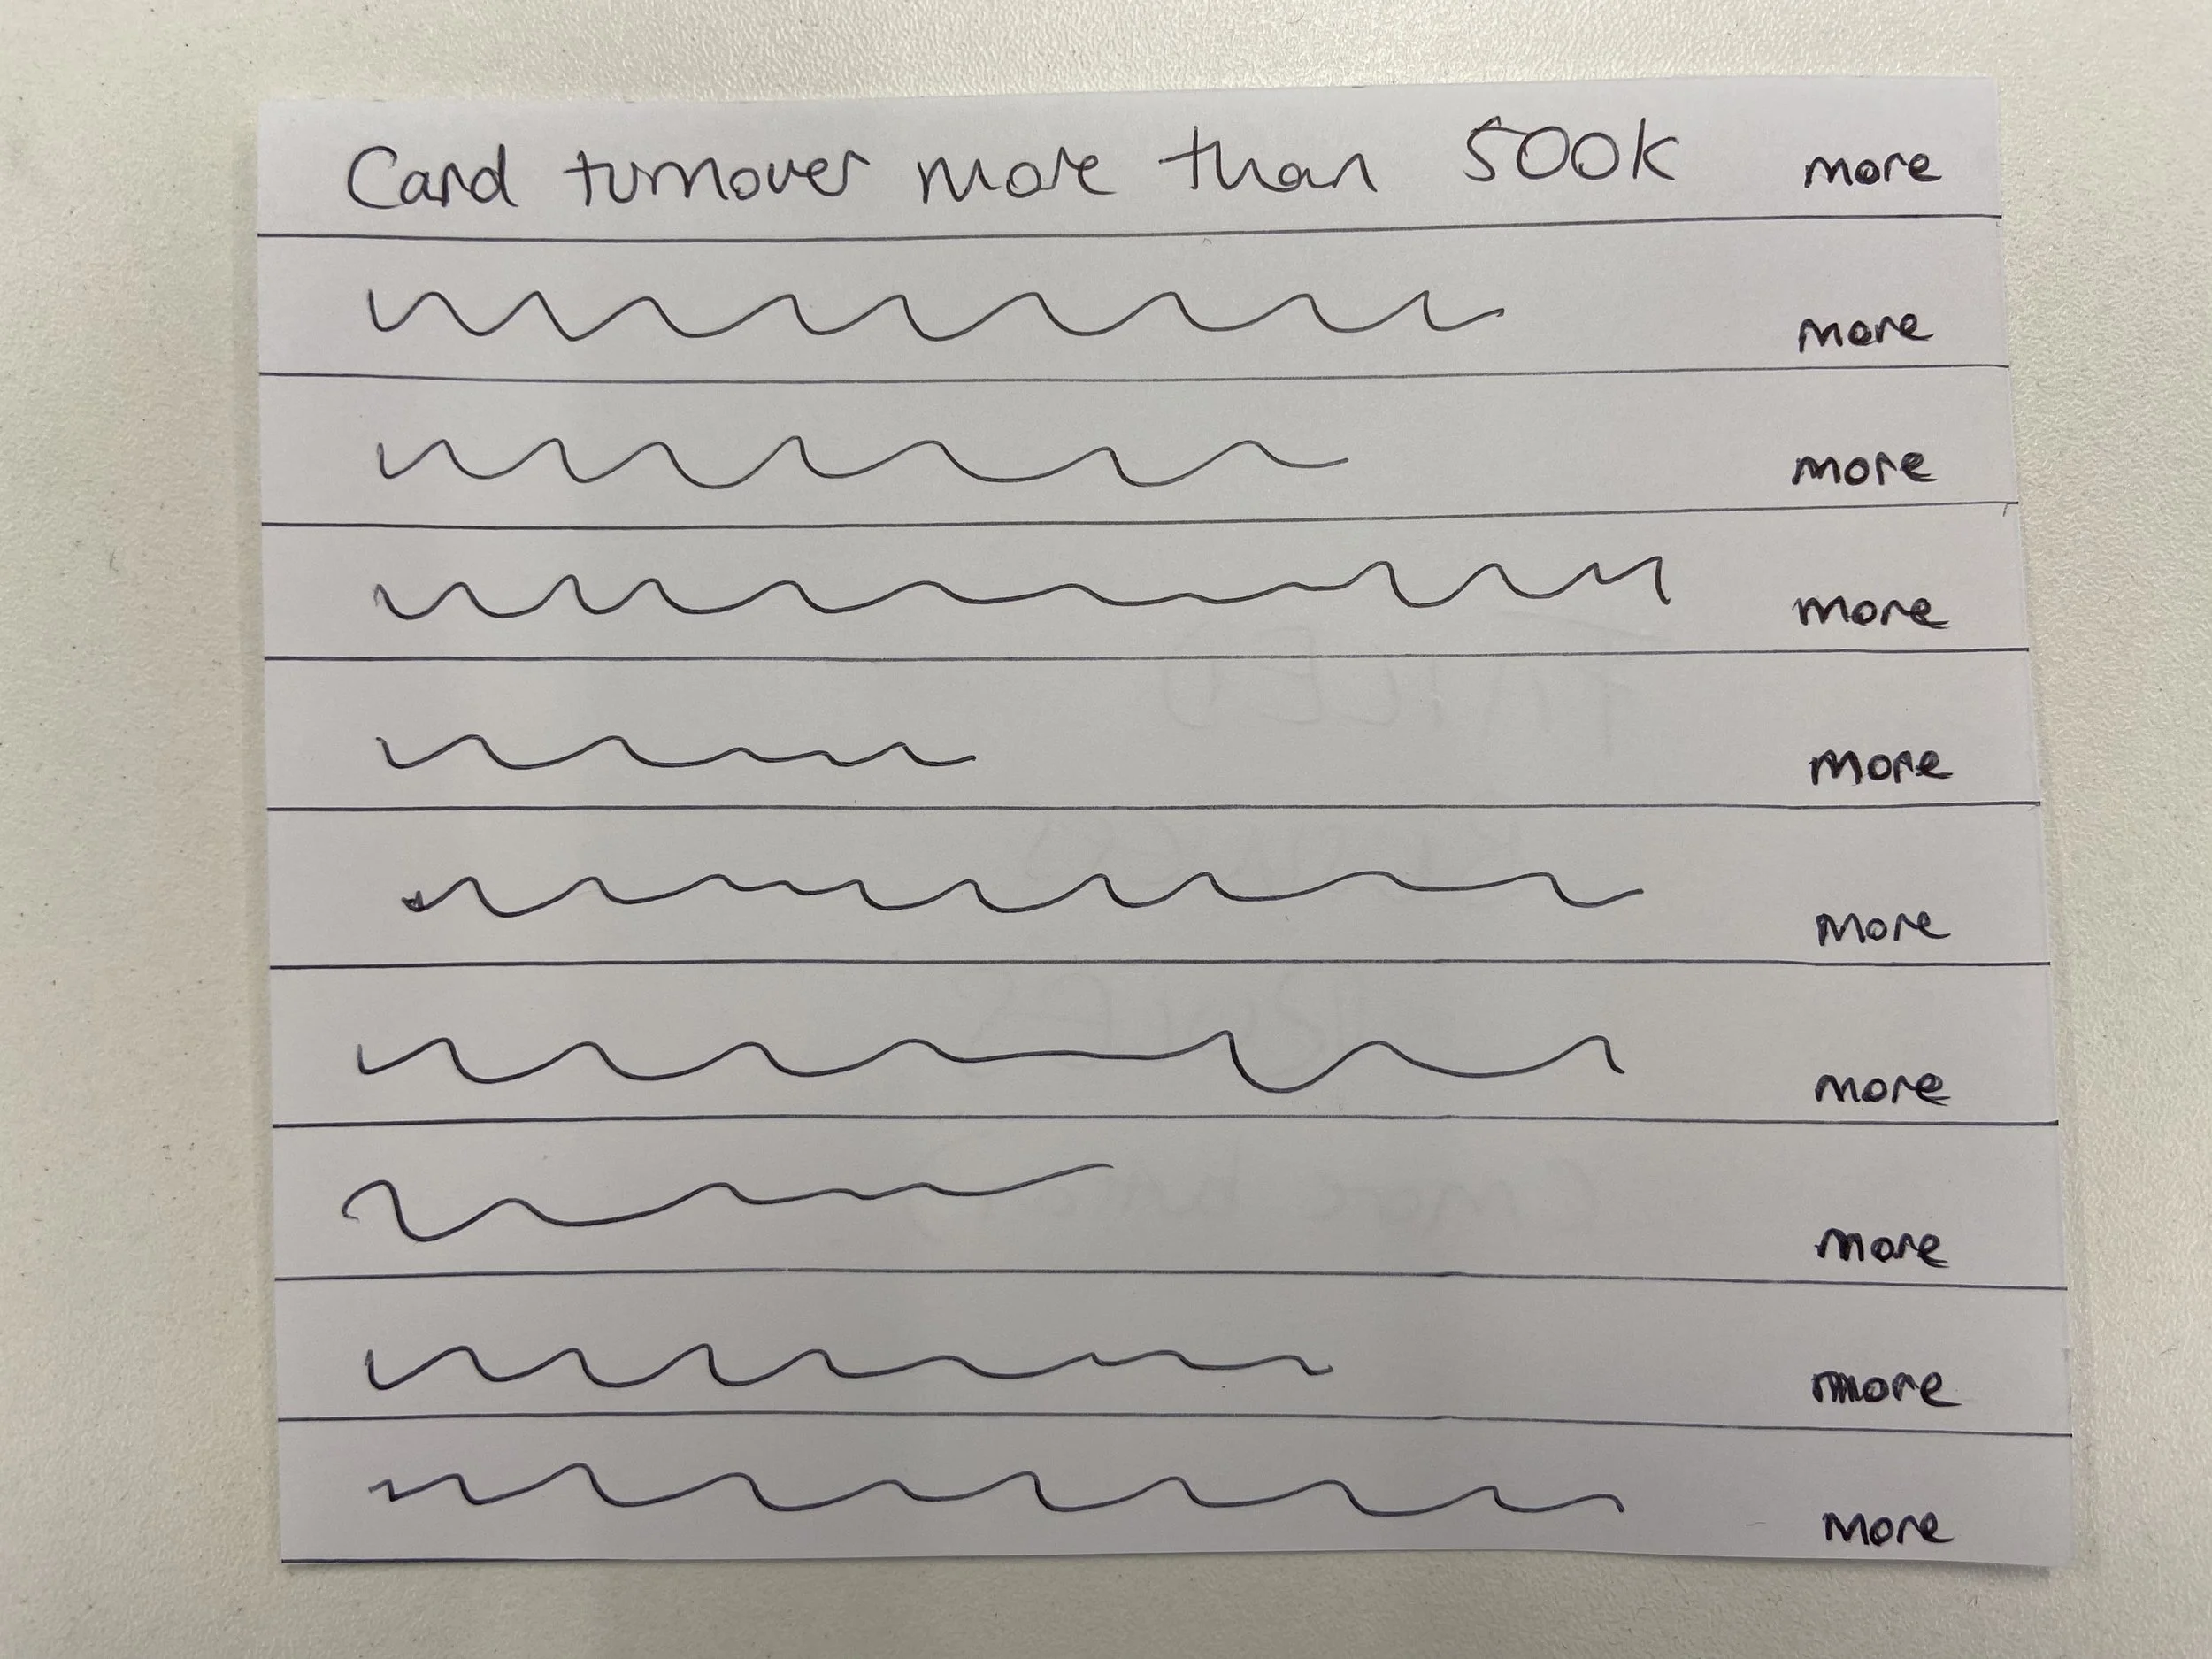 Card turnover more than 500k more
more
more
more
more
more
more
more
more
more